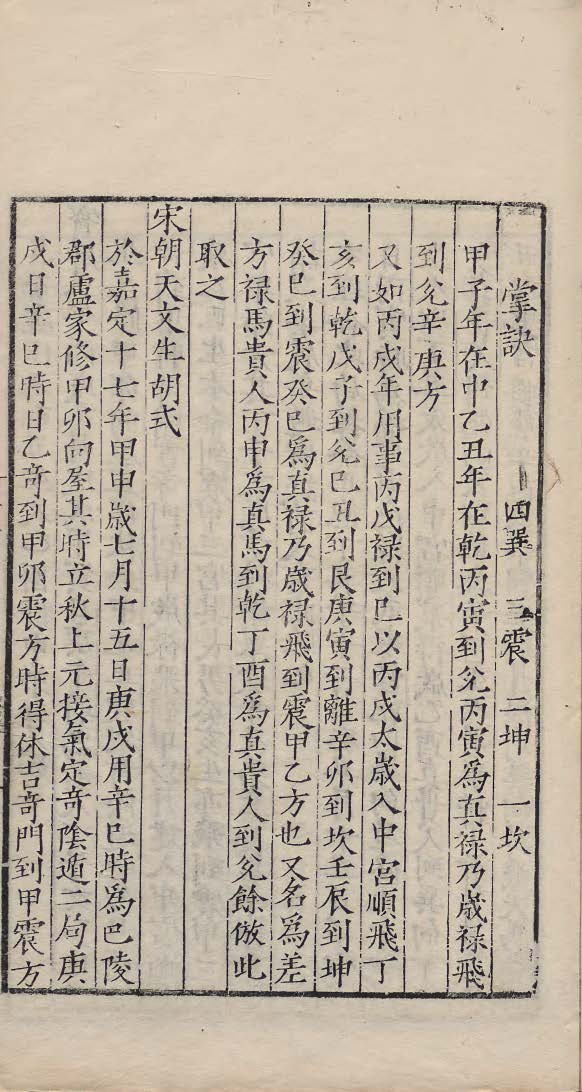 掌訣 四巽 三震 二坤 一坎
甲子年在中乙丑年在乾丙寅到兊丙寅為真禄乃歲禄飛
到兊辛庚方
又如丙戌年用事丙戊禄到巳以丙戌太歲入中宮順飛丁
亥到乾戊子到兊巳丑到艮庚寅到離辛卯到坎壬辰到坤
癸巳到震癸巳爲真禄乃歲禄飛到震甲乙方也又名為差
方禄馬貴人丙申為真馬到乾丁酉為真貴人到兊餘倣此
取之
宋朝天文生胡式
於嘉定十七年甲申歲七月十五日庚戌用辛巳時爲巴陵
郡盧家修甲卯向屋其時立秋上元接氣定竒陰遁二局庚
戌日辛巳時日乙竒到甲卯震方時得休吉竒門到甲震方